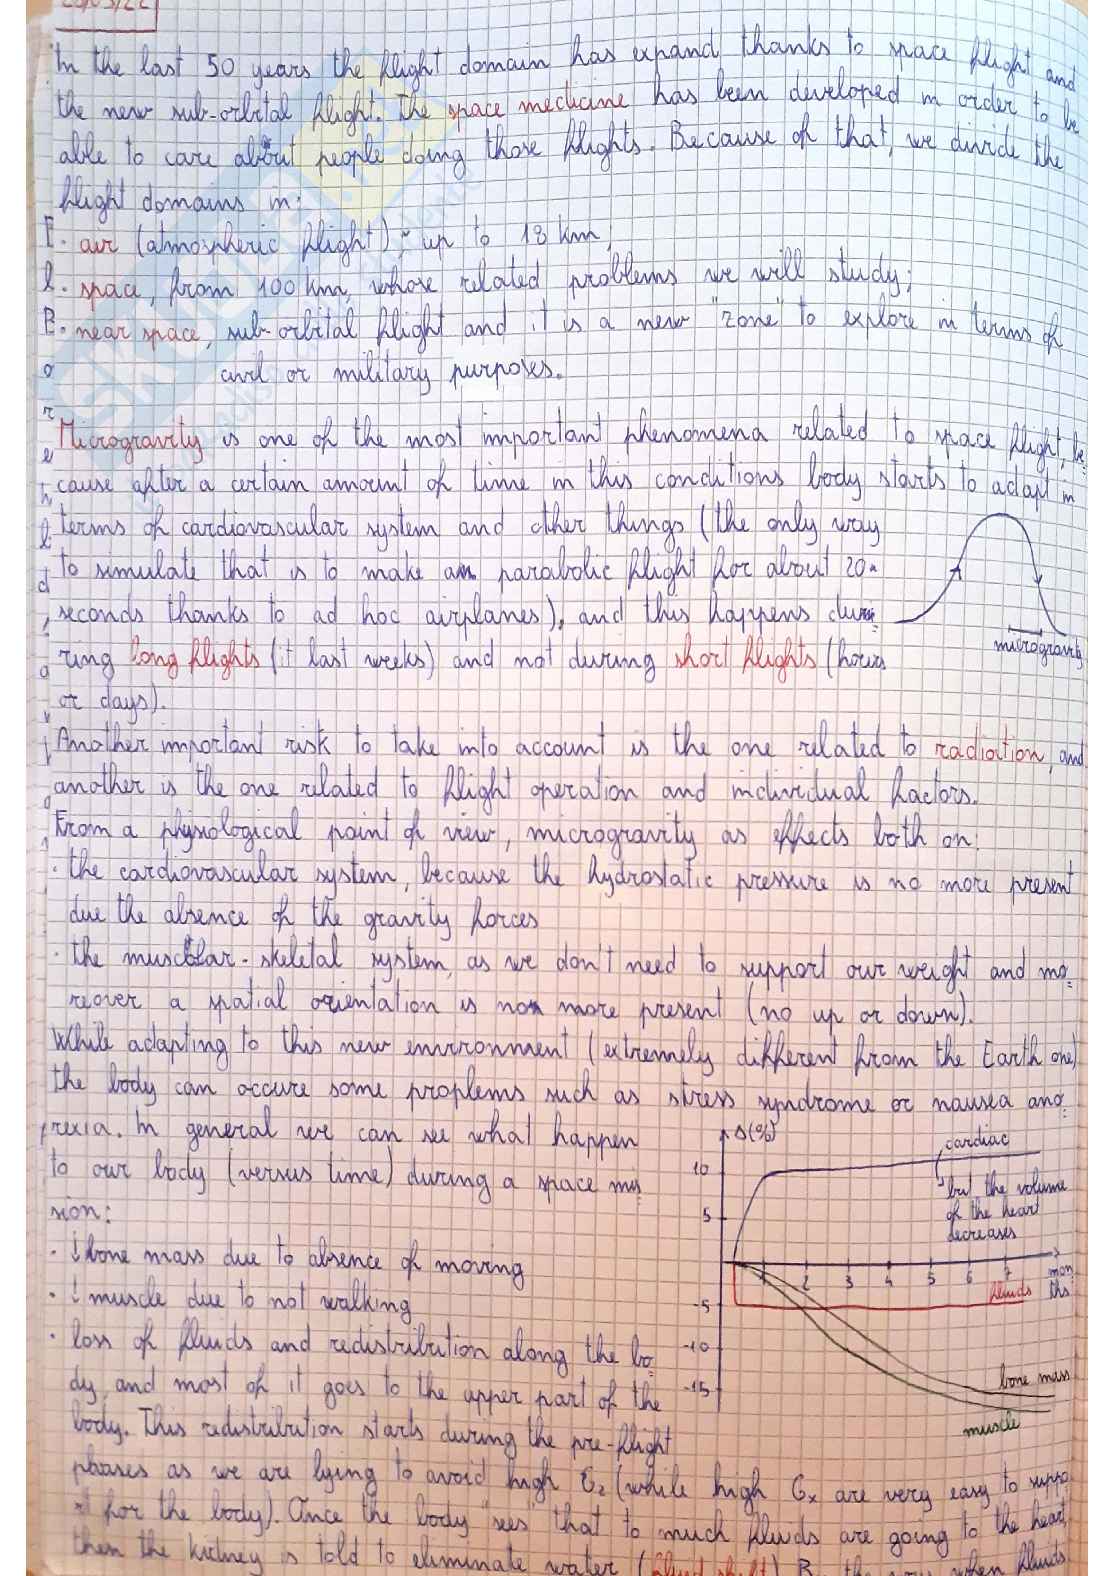 In the last 50 years the flight domain has expand thanks to space flight and
the new sub-orbital flight. The space medicine has been developed in order to be
able to care about people doing those flights. Because of that, we divide the
flight domains in:
· air (atmospheric flight), up to 18 km;
· space, from 100 km, whose related problems we will study;
· near space, sub-orbital flight and it is a new "zone" to explore in terms of
civil or military purposes.
Microgravity is one of the most important phenomena related to space flight, be
cause after a certain amount of time in this conditions body starts to adapt in
terms of cardiovascular system and other things (the only way
to simulate that is to make a parabolic flight for about 20
seconds thanks to ad hoc airplanes), and this happens du
ring long flights (it last weeks) and not during short flights (hours
or days).
microgravity
Another important risk to take into account is the one related to radiation, and
another is the one related to flight operation and individual factors.
From a physiological point of view, microgravity as effects both on:
· the cardiovascular system, because the hydrostatic pressure is no more present
due the absence of the gravity forces
· the muscular-skeletal system, as we don't need to support our weight and mo
reover a spatial orientation is no more present (no up or down).
While adapting to this new environment (extremely different from the Earth one)
the body can occure some proplems such as stress syndrome or nausea ano
rexia. In general we can see what happen
to our body (versus time) during a space mis
sion:
· ↓ bone mass due to absence of moving
· ↓ muscle due to not walking
· loss of fluids and redistribution along the bo
dy, and most of it goes to the upper part of the
body. This redistribution starts during the pre-flight
phases as we are lying to avoid high Gz (while high Gx are very easy to suppo
rt for the body). Once the body "sees" that to much fluids are going to the heart,
then the kidney is told to eliminate water (fluid shift)
when fluids
Δ(%)
10
5
-5
-10
-15
1 2 3 4 5 6 7
mon
ths
cardiac
but the volume
of the heart
decreases
fluids
bone mass
muscle